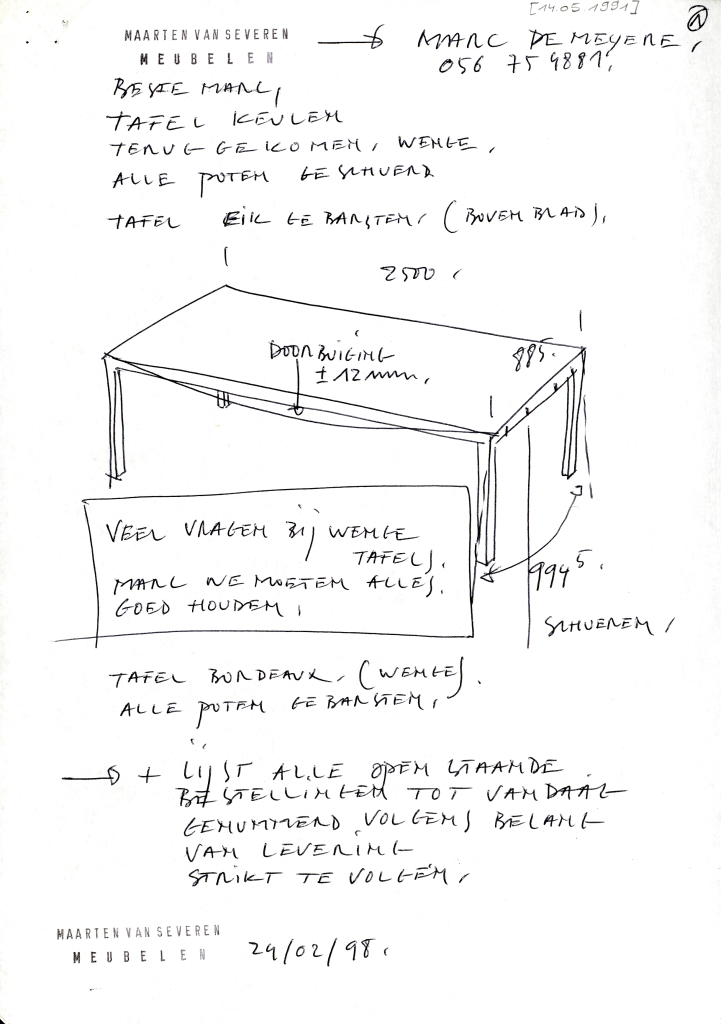 [14.05.1991]
1
MAARTEN VAN SEVEREN
MEUBELEN
MARC DE MEYERE,
056 75 9881.
BESTE MARC,
TAFEL KEULEN
TERUG GEKOMEN, WENGE,
ALLE POTEN GESCHUERD
TAFEL EIK GEBARSTEN, (BOVENBLAD),
2500,
885.
DOORBUIGING
± 12 mm,
VEEL VRAGEN BIJ WENGE
TAFELS.
MARC WE MOETEN ALLES.
GOED HOUDEN,
994⁵.
SCHUEREN,
TAFEL BORDEAUX, (WENGE).
ALLE POTEN GEBARSTEN,
+ LIJST ALLE OPENSTAANDE
BESTELLINGEN TOT VANDAAG
GENUMMERD VOLGENS BELANG
VAN LEVERING
STRIKT TE VOLGEN,
MAARTEN VAN SEVEREN
MEUBELEN
24/02/98.